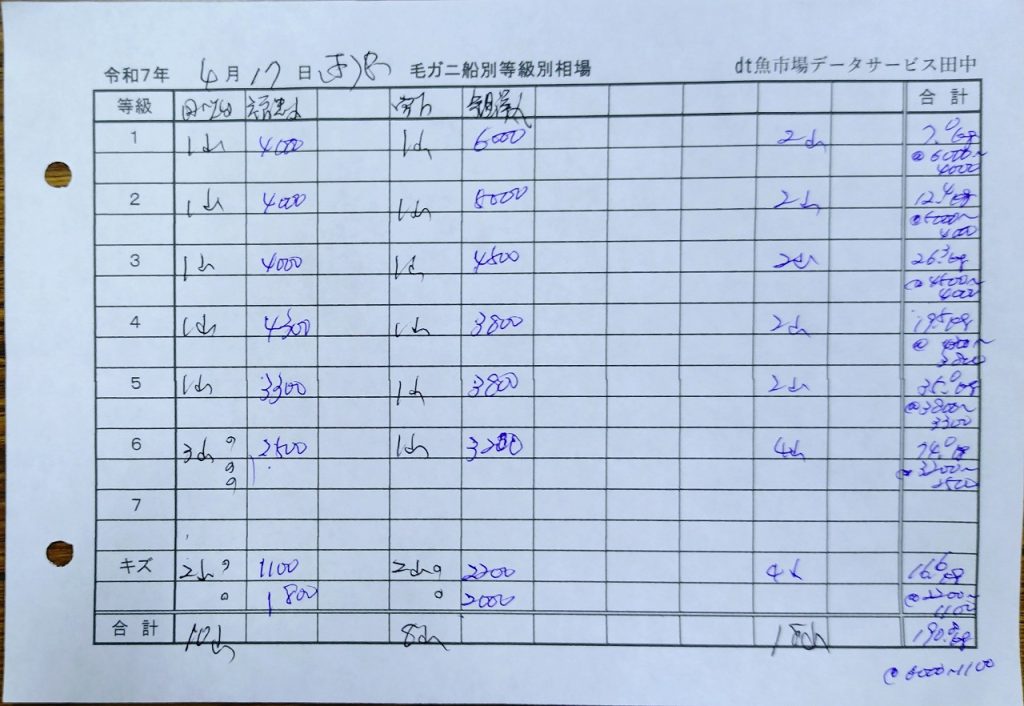 令和7年 4月17日 毛ガニ船別等級別相場 dt魚市場データサービス田中
等級 合計
1 1山 4000 1山 6000 2山 7.0kg
@6000~
4000
2 1山 4000 1山 5000 2山 12.4kg
@5000~
4000
3 1山 4000 1山 4500 2山 26.3kg
@4500~
4000
4 1山 4300 1山 3800 2山 19.5kg
3800
5 1山 3300 1山 3800 2山 35.0kg
@3800~
3300
6 3山 2500 1山 3200 4山 74.0kg
@3200~
2500
7
キズ 2山 1100 2山 2200 4山 16.6kg
1800 2000 @2200~
1100
合計 10山 8山 18山 190.8kg
@6000~1100